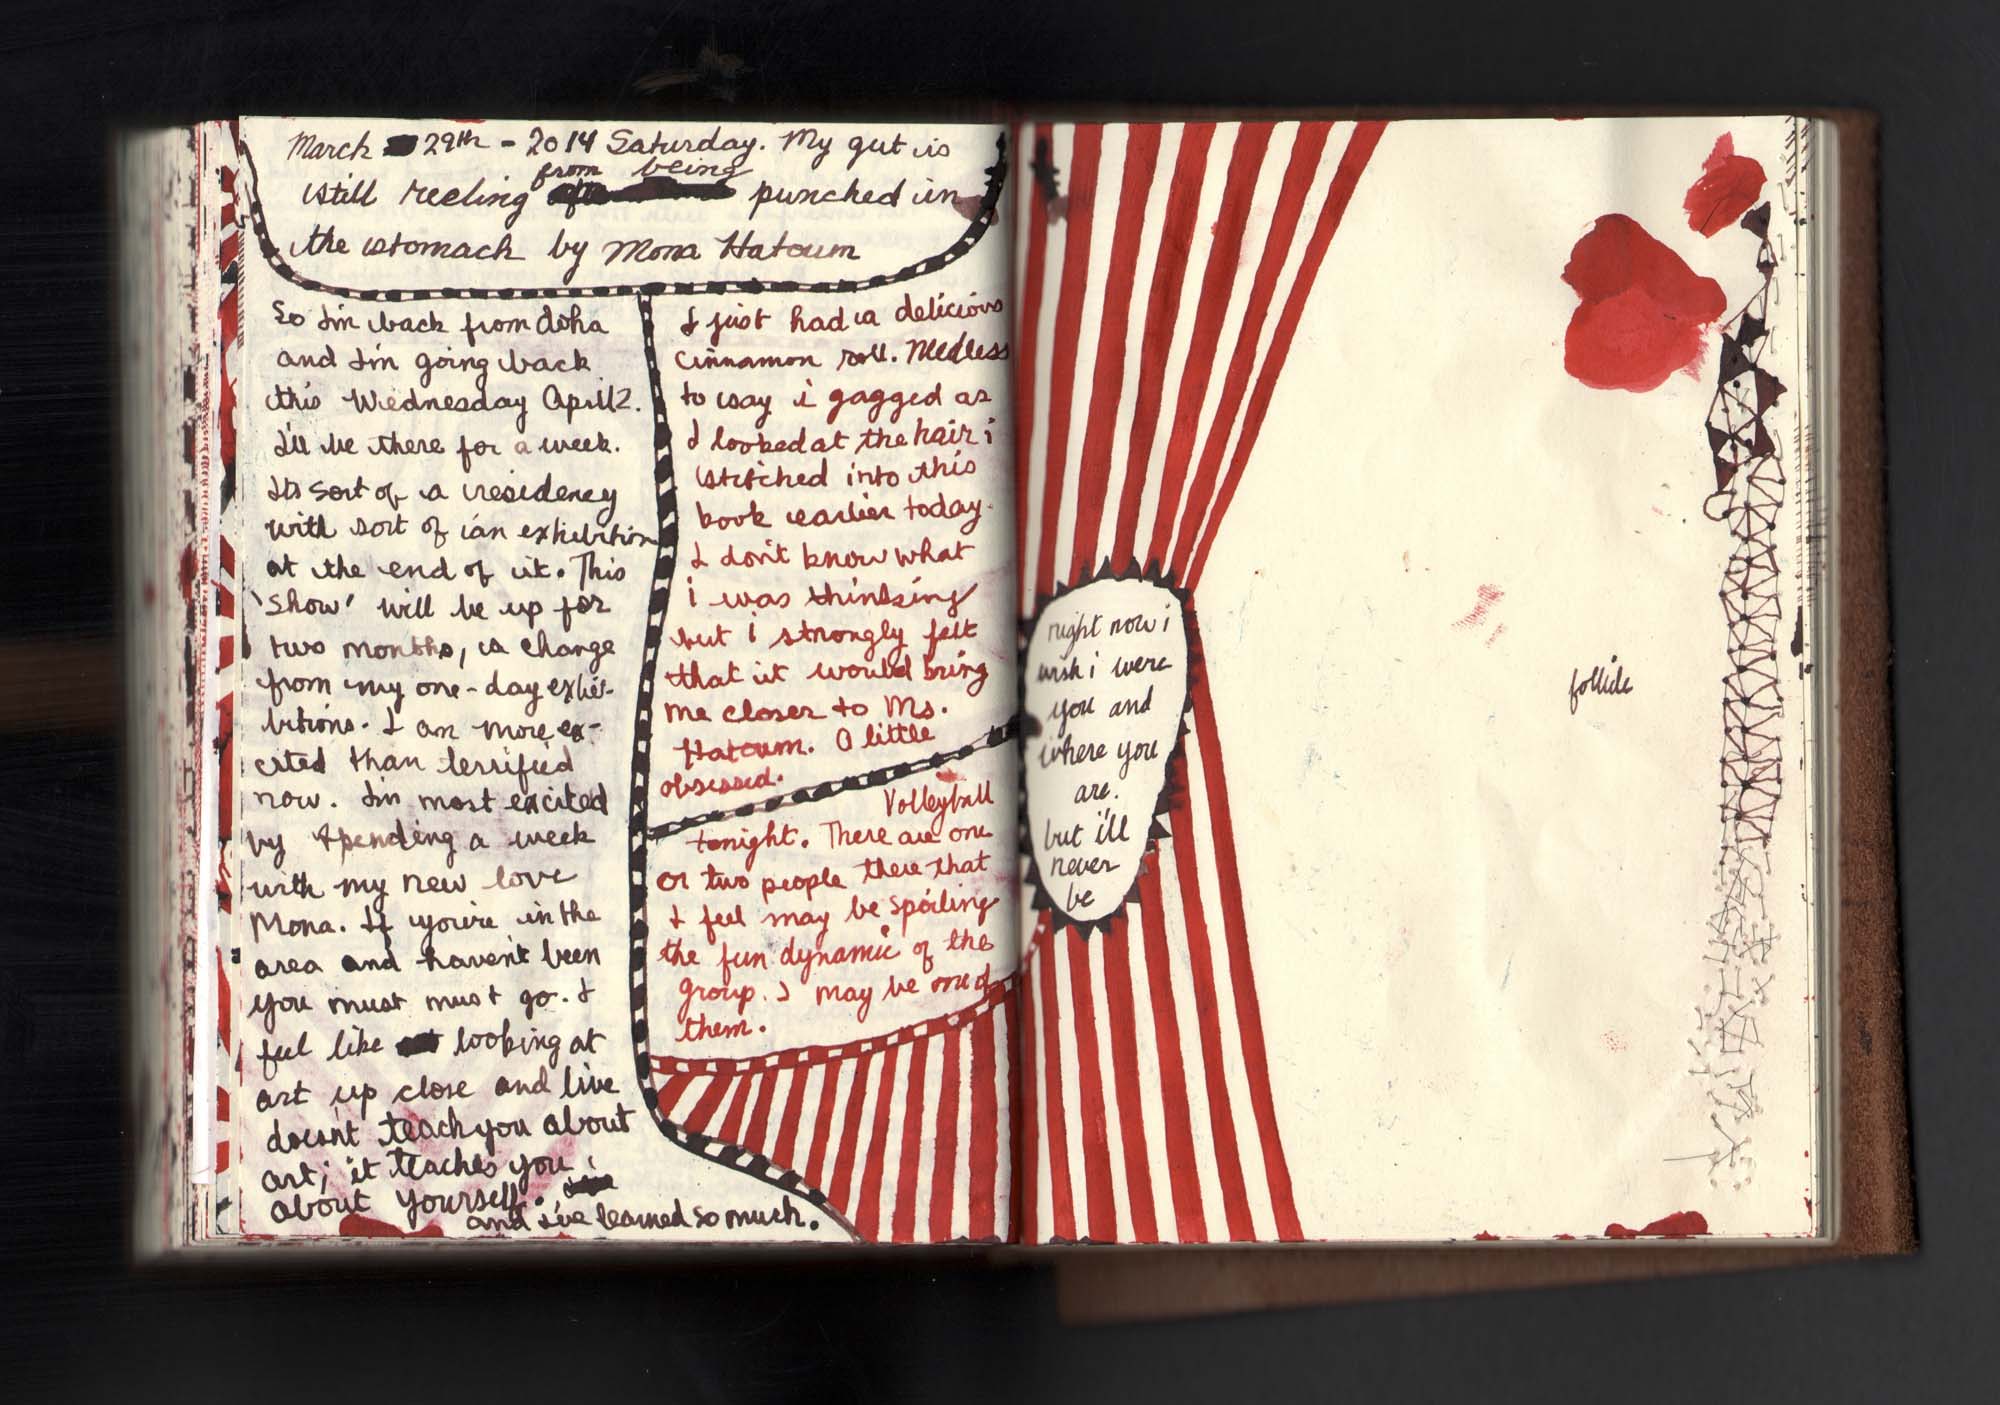 March 29th - 2014 Saturday. My gut is
still reeling from being punched in
the stomach by Mona Hatoum
So I'm back from doha
and I'm going back
this Wednesday April 2.
I'll be there for a week.
Its sort of a residency
with sort of an exhibition
at the end of it. This
'show' will be up for
two months, a change
from my one-day exhi-
bitions. I am more ex-
cited than terrified
now. I'm most excited
by spending a week
with my new love
Mona. If you're in the
area and haven't been
you must must go. I
feel like looking at
art up close and live
doesn't teach you about
art; it teaches you
about yourself.
and i've learned so much.
I just had a delicious
cinnamon roll. Needless
to say i gagged as
I looked at the hair i
stitched into this
book earlier today.
I don't know what
i was thinking
but i strongly felt
that it would bring
me closer to Ms.
Hatoum. A little
obsessed.
Volleyball
tonight. There are one
or two people there that
I feel may be spoiling
the fun dynamic of the
group. I may be one of
them.
right now i
wish i were
you and
where you
are.
but i'll
never
be
follide